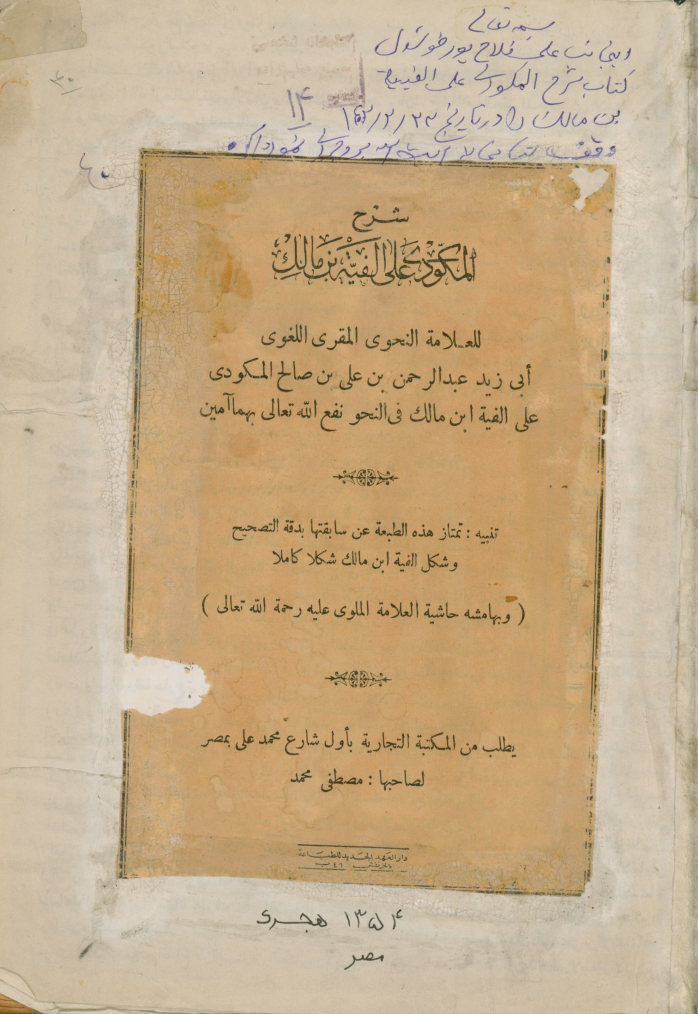 بسمه تعالی
اینجانب علی فلاح پور
کتاب شرح المکودی علی الفیة
بن مالک را در تاریخ
وقف
۱۴
شرح
المكودى على ألفية بن مالك
للعلامة النحوى المقرى اللغوى
أبى زيد عبدالرحمن بن على بن صالح المكودى
على الفية ابن مالك فى النحو نفع الله تعالى بهما آمين
تنبيه : تمتاز هذه الطبعة عن سابقتها بدقة التصحيح
وشكل الفية ابن مالك شكلا كاملا
( وبهامشه حاشية العلامة الملوى عليه رحمة الله تعالى )
يطلب من المكتبة التجارية بأول شارع محمد على بمصر
لصاحبها : مصطفى محمد
دار العهد الجديد للطباعة
۱۳۵۴ هجری
مصر